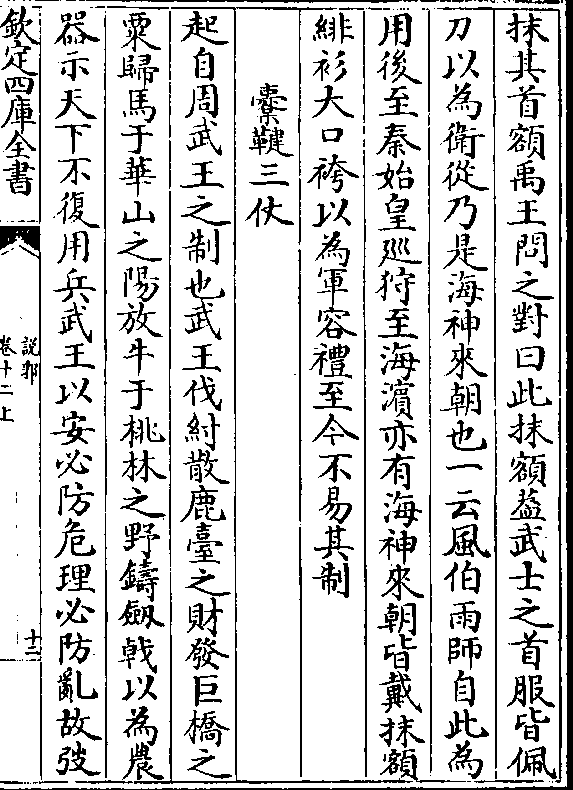 抹其首額禹王問之對曰此抹額葢武士之首服皆佩
刀以為衛從乃是海神來朝也一云風伯雨師自此為
用後至秦始皇廵狩至海濵亦有海神來朝皆戴抹額
緋衫大口袴以為軍容禮至今不易其制
櫜鞬三仗
起自周武王之制也武王伐紂散鹿臺之財發巨橋之
粟歸馬于華山之陽放牛于桃林之野鑄劔戟以為農
器示天下不復用兵武王以安必防危理必防亂故弢
欽定四庫全書
說郛
卷十二上
十二